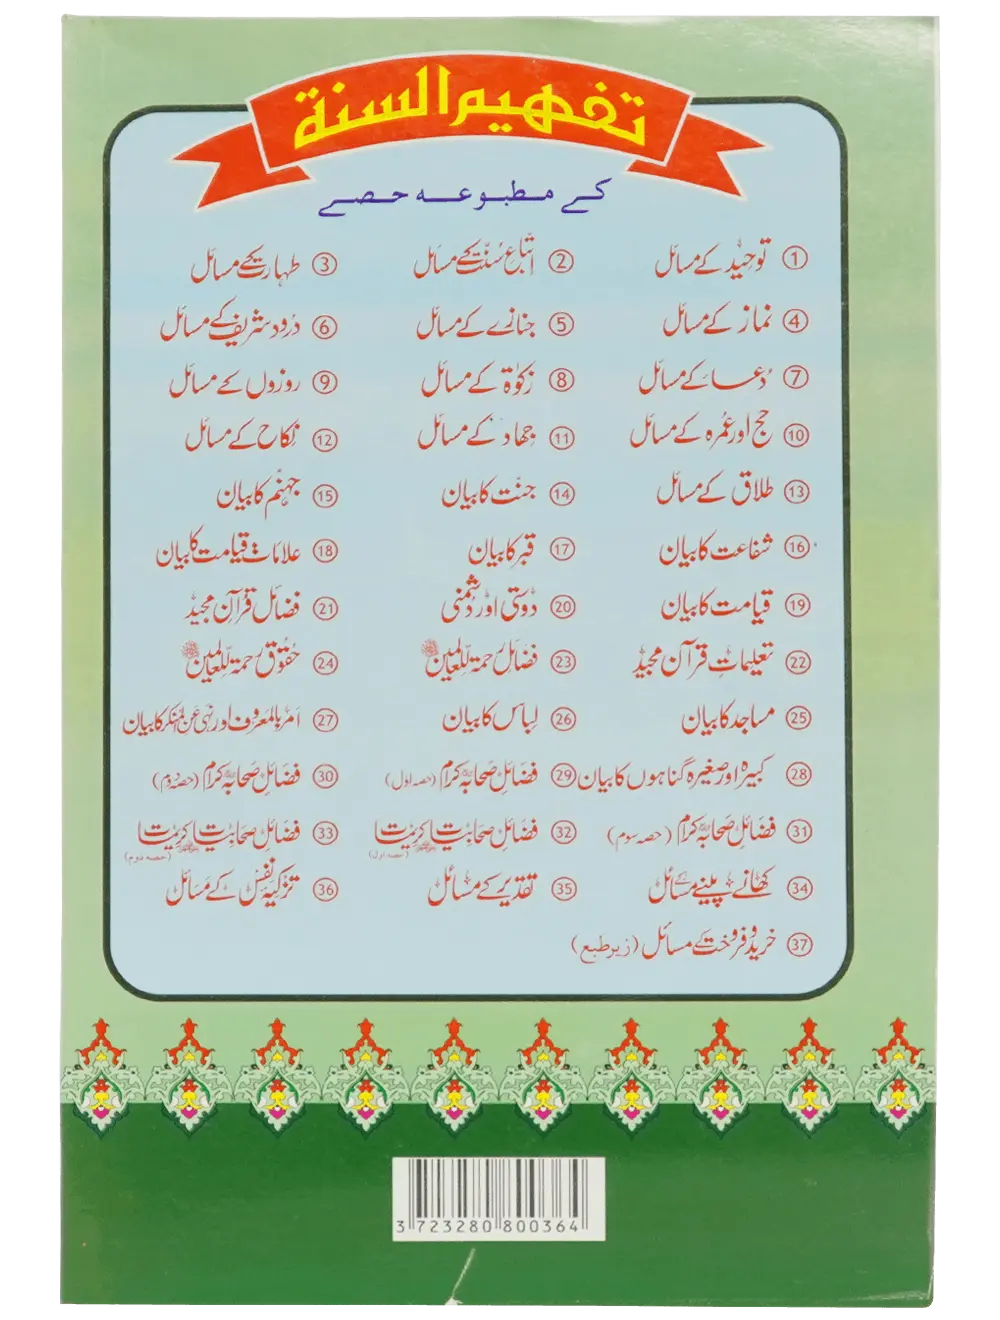 تفہیم السنۃ
کے مطبوعہ حصے
① توحید کے مسائل ② اتباع سنت کے مسائل ③ طہارت کے مسائل
④ نماز کے مسائل ⑤ جنازے کے مسائل ⑥ درود شریف کے مسائل
⑦ دعا کے مسائل ⑧ زکوٰۃ کے مسائل ⑨ روزوں کے مسائل
⑩ حج اور عمرہ کے مسائل ⑪ جہاد کے مسائل ⑫ نکاح کے مسائل
⑬ طلاق کے مسائل ⑭ جنت کا بیان ⑮ جہنم کا بیان
⑯ شفاعت کا بیان ⑰ قبر کا بیان ⑱ علامات قیامت کا بیان
⑲ قیامت کا بیان ⑳ دوستی اور دشمنی ㉑ فضائل قرآن مجید
㉒ تعلیمات قرآن مجید ㉓ فضائل رحمۃ للعالمین ﷺ ㉔ حقوق رحمۃ للعالمین ﷺ
㉕ مساجد کا بیان ㉖ لباس کا بیان ㉗ امر بالمعروف اور نہی عن المنکر کا بیان
㉘ کبیرہ اور صغیرہ گناہوں کا بیان ㉙ فضائل صحابہ کرام (حصہ اول) ㉚ فضائل صحابہ کرام (حصہ دوم)
㉛ فضائل صحابہ کرام (حصہ سوم) ㉜ فضائل صحابیات کریمات (حصہ اول) ㉝ فضائل صحابیات کریمات (حصہ دوم)
㉞ کھانے پینے کے مسائل ㉟ تقدیر کے مسائل ㊱ تزکیہ نفس کے مسائل
㊲ خرید و فروخت کے مسائل (زیر طبع)
3 723280 800364